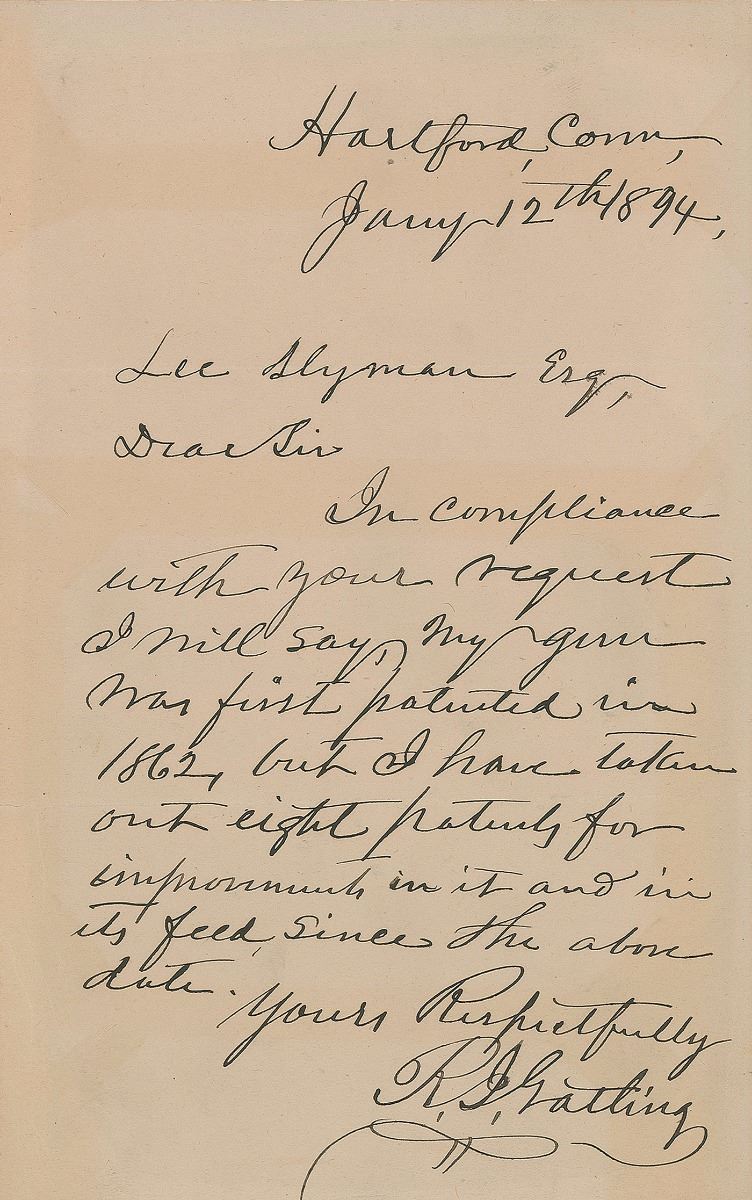 Hartford, Conn,
Jany 12th 1894,
Lee Slyman Esq,
Dear Sir
In compliance
with your request
I will say, My gun
was first patented in
1862, but I have taken
out eight patents for
improvments in it and in
its feed, since the above
date.
Yours Respectfully
R. J. Gatling